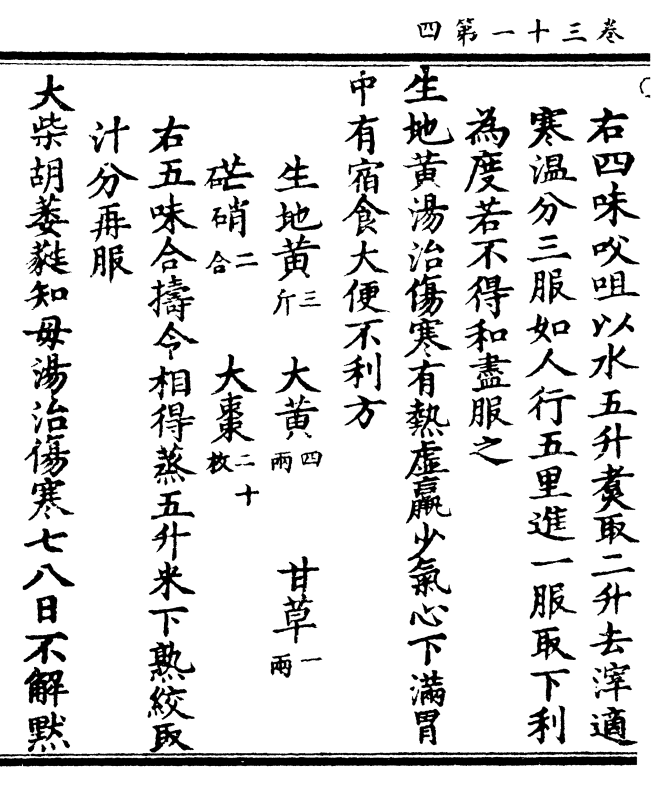 卷三十一第四
右四味㕮咀以水五升煑取二升去滓適
寒温分三服如人行五里進一服取下利
為度若不得和盡服之
生地黄湯治傷寒有熱虛羸少氣心下滿胃
中有宿食大便不利方
生地黄三斤 大黄四兩 甘草一兩
芒硝二合 大棗二十枚
右五味合擣令相得蒸五升米下熟絞取
汁分再服
大柴胡蔞蕤知毋湯治傷寒七八日不解黙